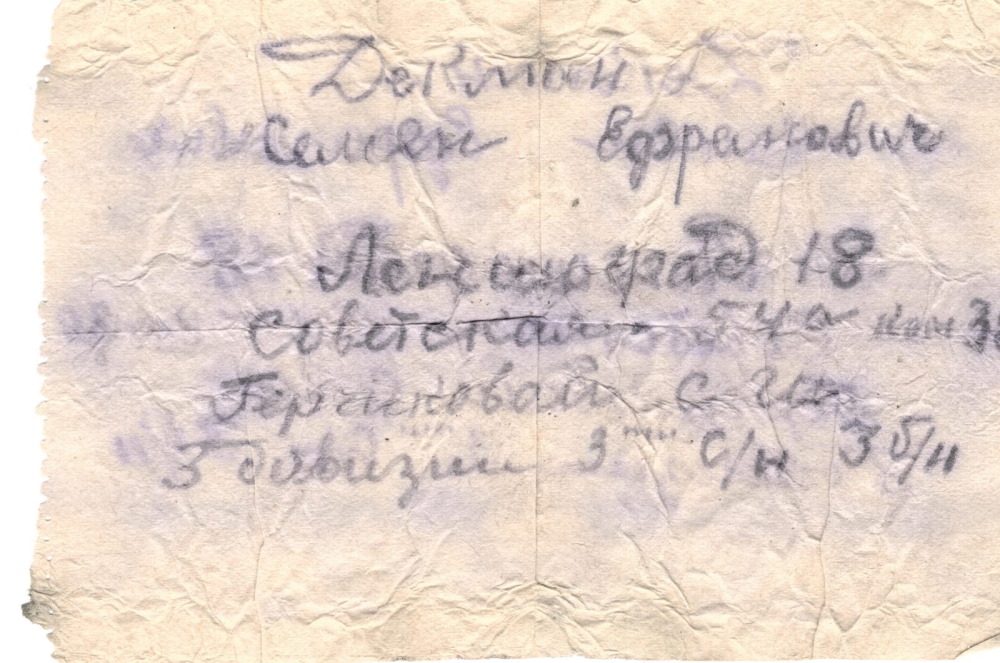 Декман
Семен Ефремович
Ленинград 18
Советская 54а ком 3
Герчиковой
3 дивизии 3 с/н 3 б/н